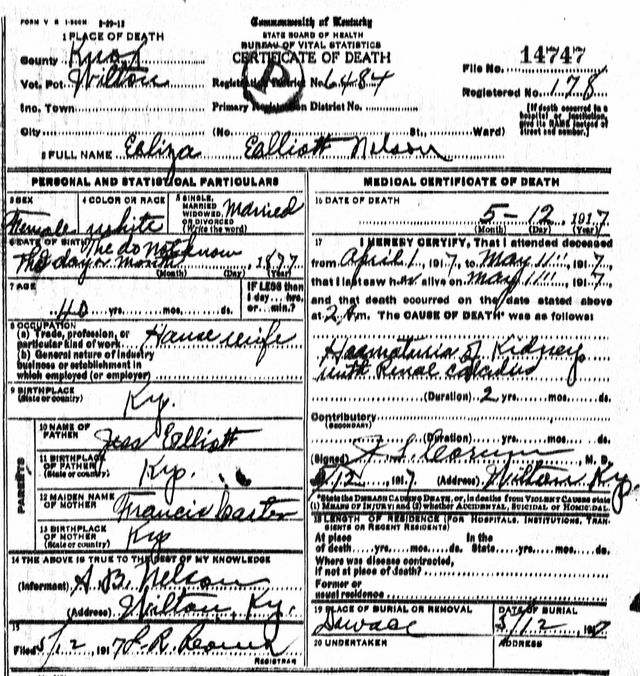 FORM V S 1-500M 8-29-13
Commonwealth of Kentucky
STATE BOARD OF HEALTH
BUREAU OF VITAL STATISTICS
CERTIFICATE OF DEATH
1 PLACE OF DEATH
County Knox
Vot. Pct. Wilton
Inc. Town
City (No. St., Ward)
Registration District No. 6484
Primary Registration District No.
File No. 14747
Registered No. 178
(If death occurred in a hospital or institution, give its NAME instead of street and number.)
2 FULL NAME Ealiza Ealliott Nelson
PERSONAL AND STATISTICAL PARTICULARS
3 SEX Female
4 COLOR OR RACE white
5 SINGLE, MARRIED WIDOWED, OR DIVORCED (Write the word) Married
6 DATE OF BIRTH The do not know
The day or month 1877
(Month) (Day) (Year)
7 AGE
40 yrs. mos. ds.
IF LESS than 1 day... hrs. or... min.?
8 OCCUPATION
(a) Trade, profession, or particular kind of work House wife
(b) General nature of industry business or establishment in which employed (or employer)
9 BIRTHPLACE (State or country) Ky.
PARENTS
10 NAME OF FATHER Jess Ealliott
11 BIRTHPLACE OF FATHER (State or country) Ky.
12 MAIDEN NAME OF MOTHER Francis Carter
13 BIRTHPLACE OF MOTHER (State or country) Ky
14 THE ABOVE IS TRUE TO THE BEST OF MY KNOWLEDGE
(Informant) A. B. Nelson
(Address) Wilton, Ky.
15
Filed 5/12, 1917
REGISTRAR
MEDICAL CERTIFICATE OF DEATH
16 DATE OF DEATH
5-12, 1917
(Month) (Day) (Year)
17 I HEREBY CERTIFY, That I attended deceased
from April 1, 1917, to May 11, 1917,
that I last saw h alive on May 11, 1917,
and that death occurred on the date stated above
at 2 A m. The CAUSE OF DEATH* was as follows:
Haematuria of Kidney
with Renal calculus
(Duration) 2 yrs. mos. ds.
Contributory
(SECONDARY)
(Duration) yrs. mos. ds.
(Signed) M. D.
5/12, 1917 (Address) Wilton Ky.
*State the DISEASE CAUSING DEATH, or, in deaths from VIOLENT CAUSES state
(1) MEANS OF INJURY; and (2) whether ACCIDENTAL, SUICIDAL or HOMICIDAL.
18 LENGTH OF RESIDENCE (FOR HOSPITALS, INSTITUTIONS, TRANSIENTS OR RECENT RESIDENTS)
At place of death yrs. mos. ds. In the State yrs. mos. ds.
Where was disease contracted, if not at place of death?
Former or usual residence
19 PLACE OF BURIAL OR REMOVAL
DATE OF BURIAL
5/12, 1917
20 UNDERTAKER
ADDRESS